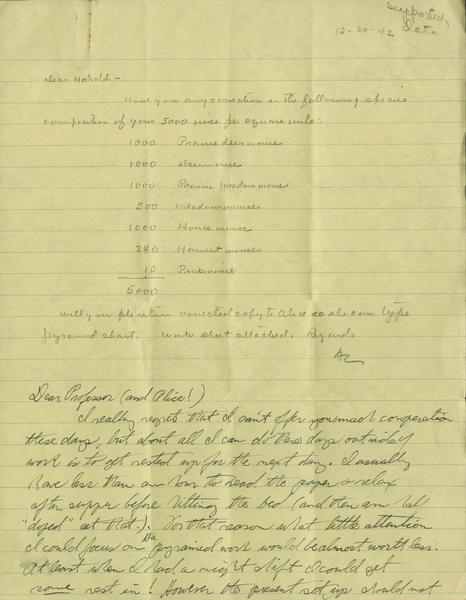 Supporting
Data
12-30-42
Dear Harold -
Have you any correction in the following species
composition of your 5000 mice per square mile:
1000 Prairie deermouse
1000 Deermouse
1000 Prairie meadowmouse
500 Meadowmouse
1000 House mouse
240 Harvest mouse
10 Pine
5000
Will you pls return corrected copy to Alice so she can type
pyramid chart. Work sheet attached. Regards
Dear Professor (and Alice!)
I really regret that I can't offer you much cooperation
these days, but about all I can do these days outside of
work is to get rested up for the next day. I usually
have less than an hour to read the paper & relax
after supper before hitting the bed (and then am half
"dozed" at that.). For that reason what little attention
I could focus on the pyramid work would be almost worthless.
At least when I had a night shift I could get
some rest in! However the present set up should not